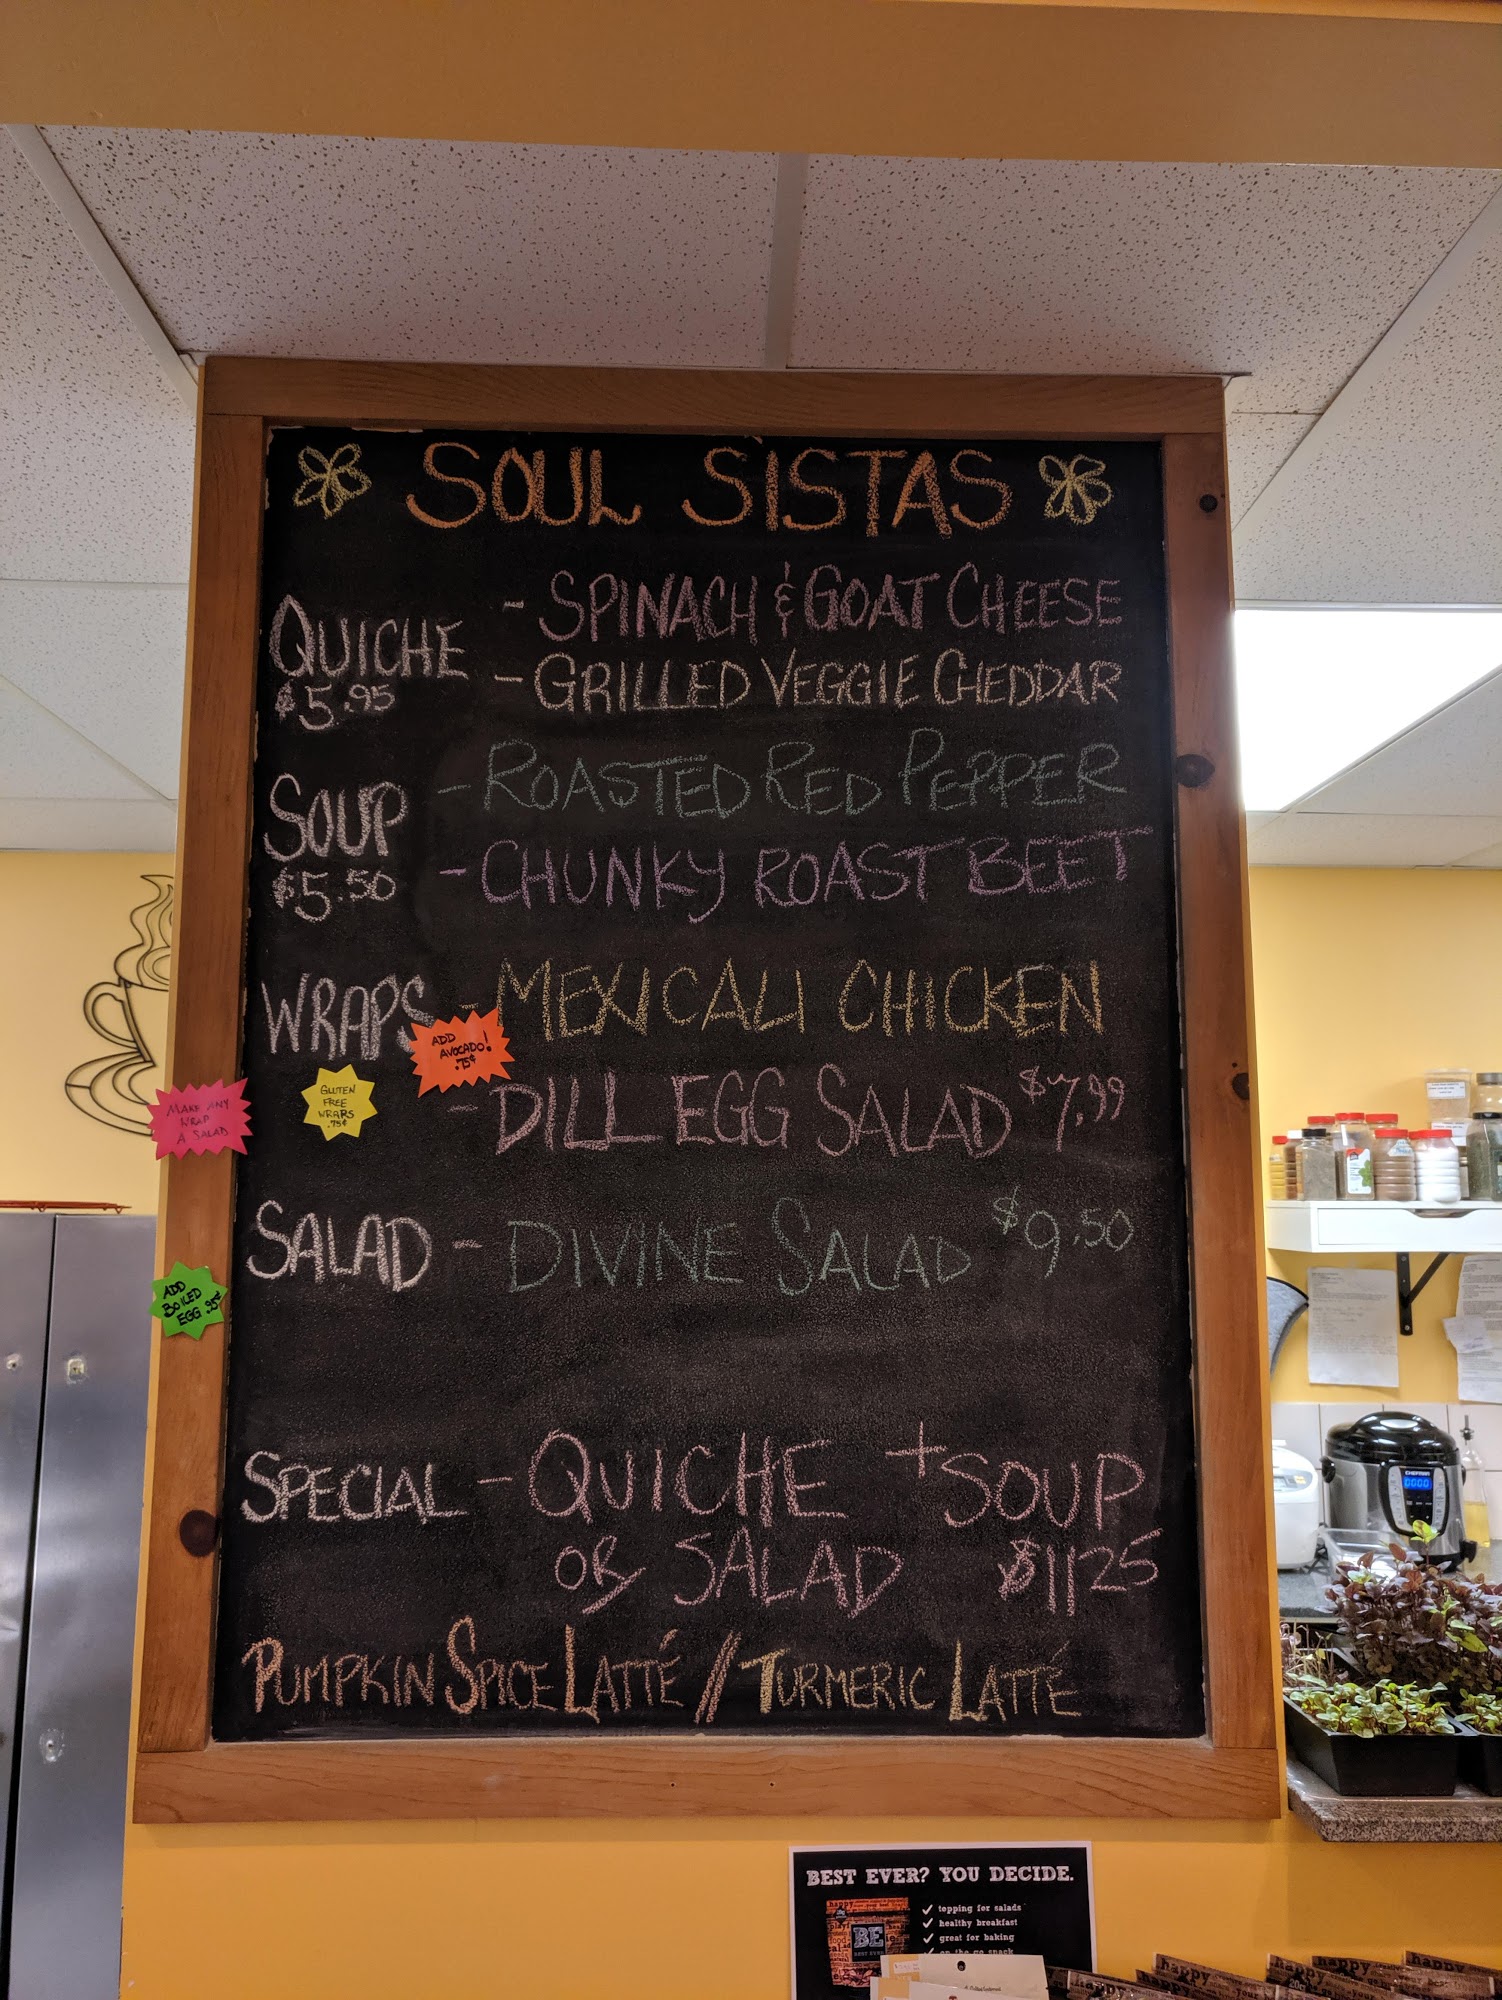 SOUL SISTAS
QUICHE
$5.95
- SPINACH & GOAT CHEESE
- GRILLED VEGGIE CHEDDAR
SOUP
$5.50
- ROASTED RED PEPPER
- CHUNKY ROAST BEET
WRAPS - MEXICALI CHICKEN
ADD
AVOCADO!
.75¢
GLUTEN
FREE
WRAPS
.75¢
MAKE ANY
WRAP
A SALAD
- DILL EGG SALAD $7.99
SALAD - DIVINE SALAD $9.50
ADD
BOILED
EGG .95¢
SPECIAL - QUICHE + SOUP
OR SALAD $11.25
PUMPKIN SPICE LATTÉ // TURMERIC LATTÉ
CHEFMAN
0000
BEST EVER? YOU DECIDE.
✓ topping for salads
✓ healthy breakfast
✓ great for baking
✓ on the go snack
BE
happy
happy
happy
happy